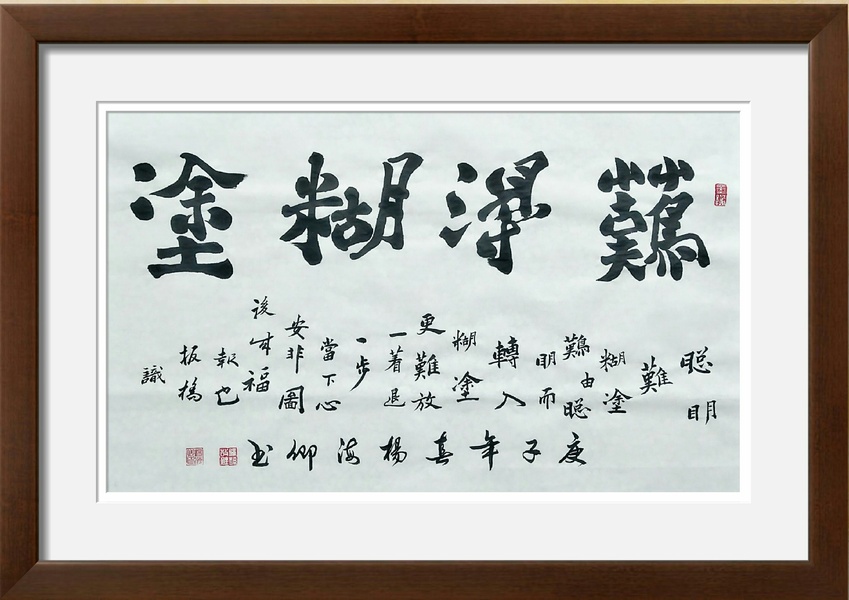 難得糊塗
聰明
難
糊塗
難由聰
明而
轉入
糊塗
更難放
一着退
一步
當下心
安非圖
後來福
報也
板橋
識
庚子年楊海仰书